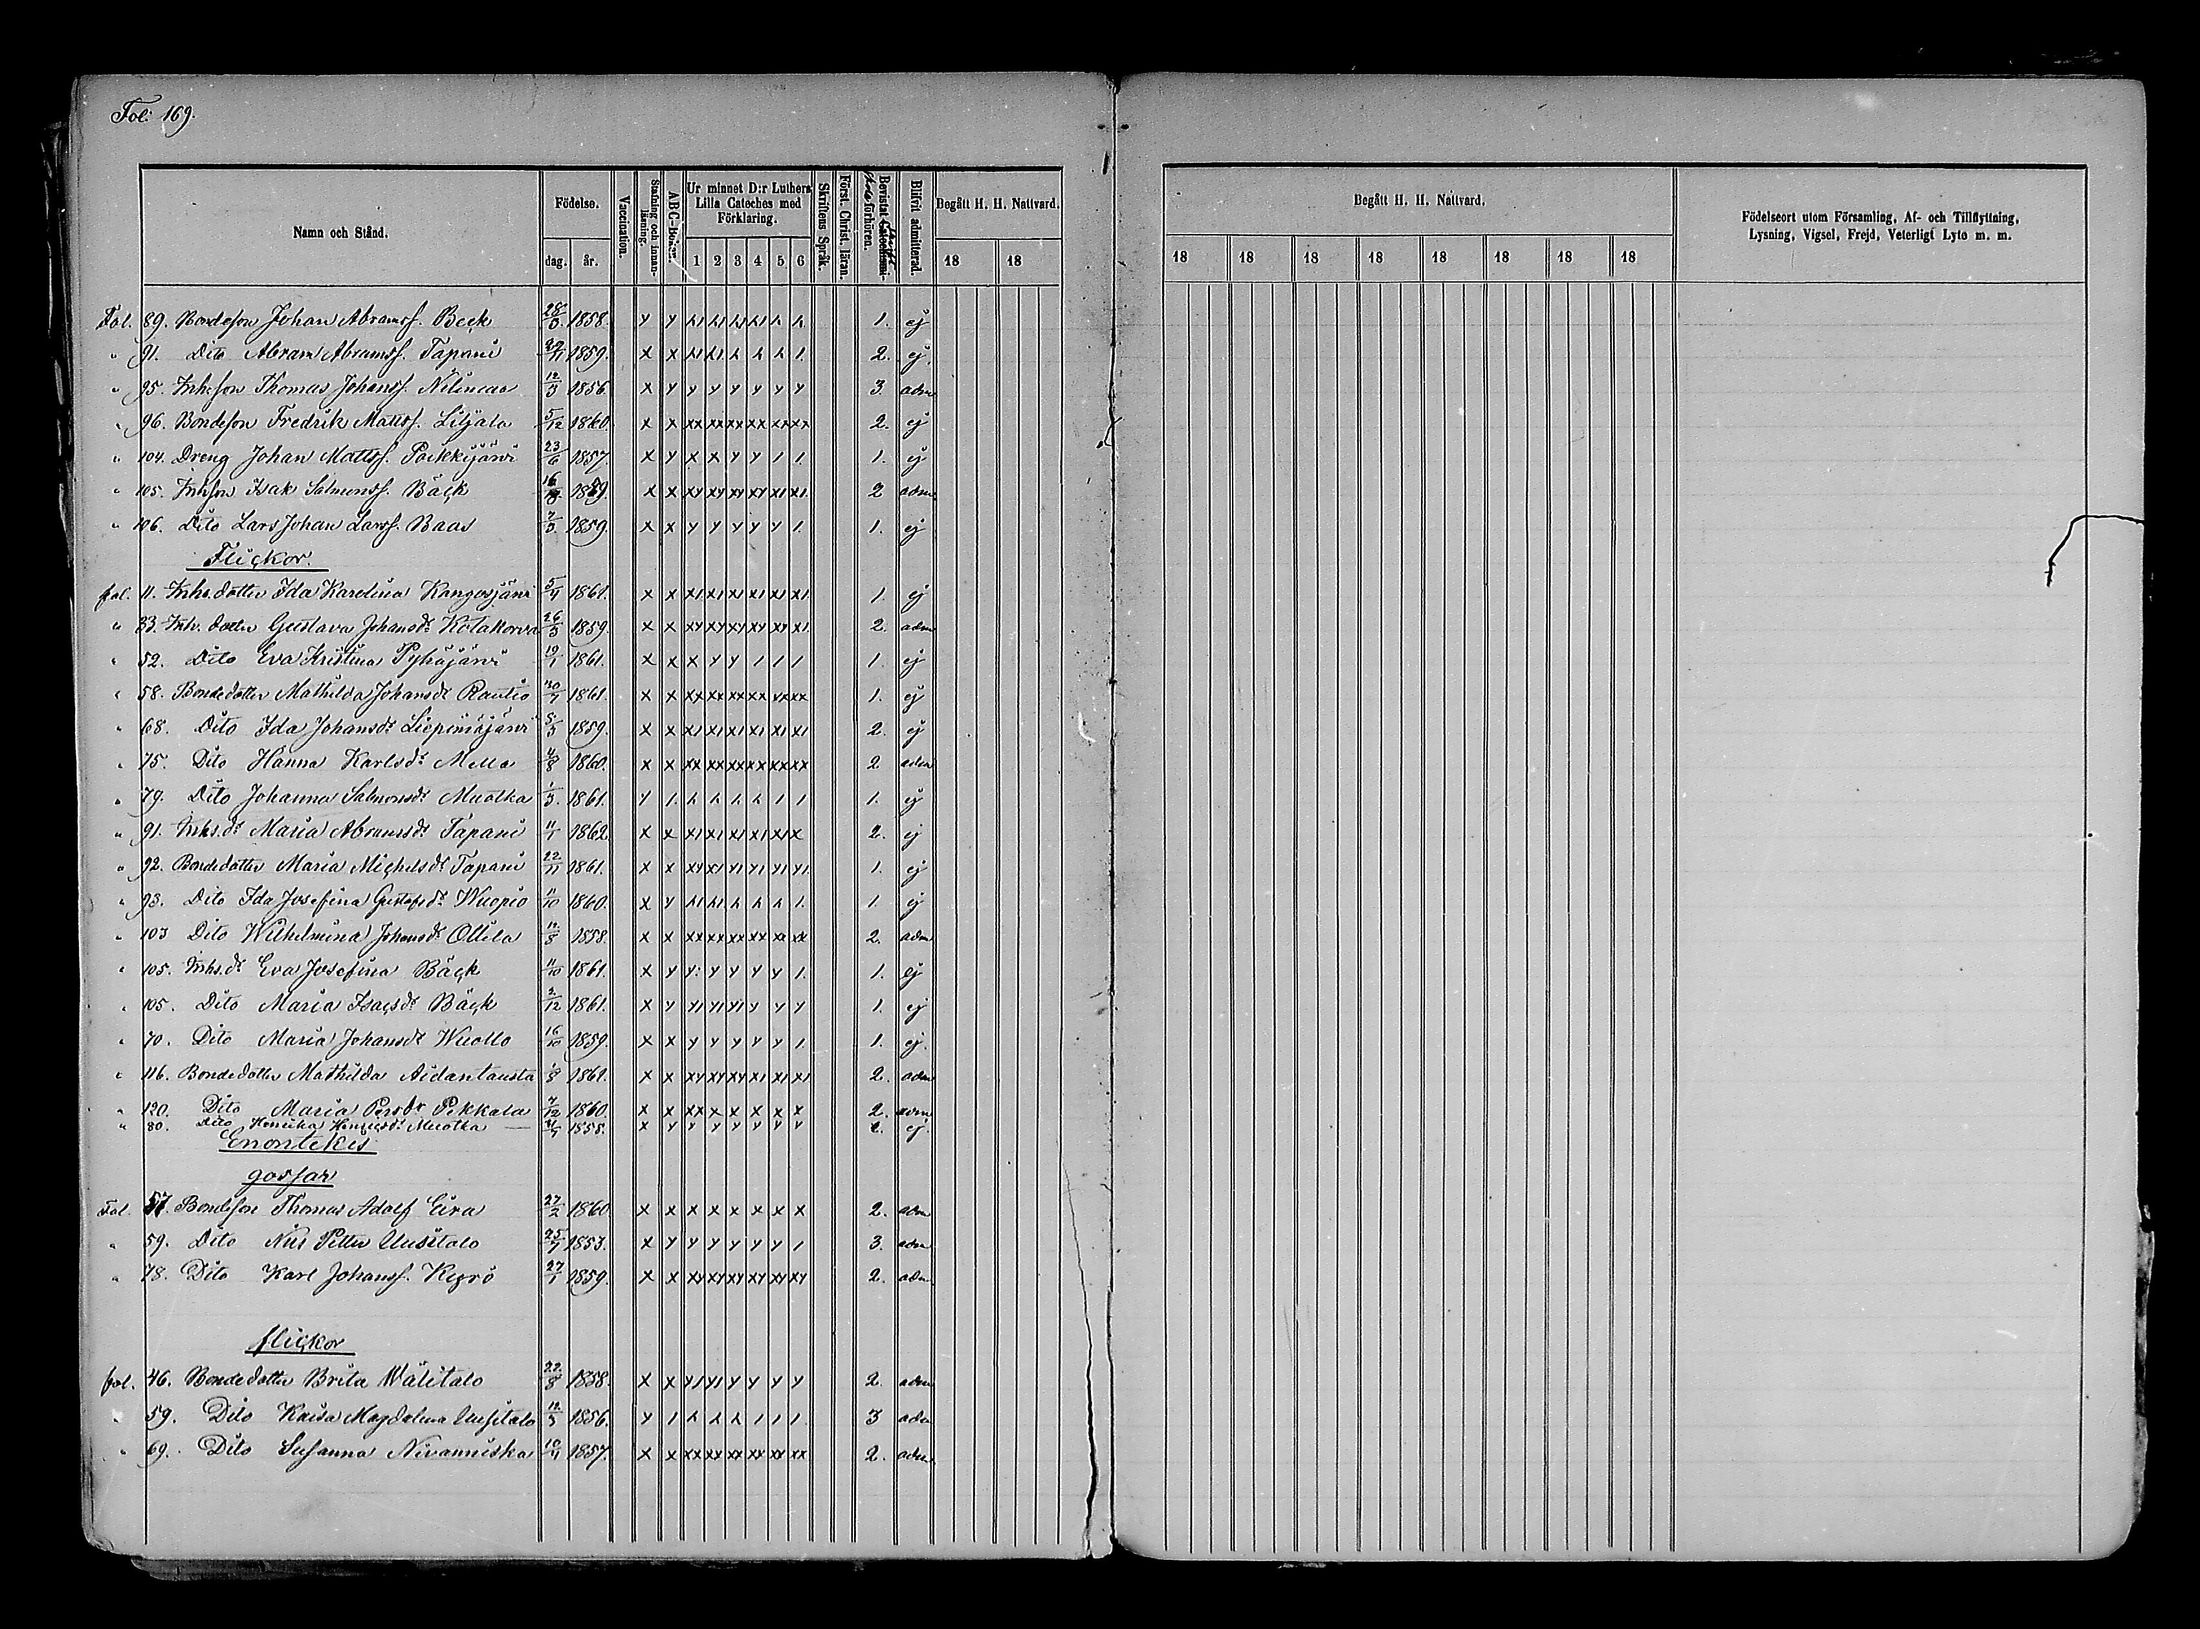 Fol. 169.
Namn och Stånd. Födelse. dag. år. Vaccination. Stafning och innanläsning. A B C-Boken. Ur minnet D:r Luthers Lilla Cateches med Förklaring. 1 2 3 4 5 6 Skriftens Språk. Först. Christ. läran. Bevistat förhören. Blifvit admitterad. Begått H. H. Nattvard. 18 18
Begått H. H. Nattvard. 18 18 18 18 18 18 18 18
Födelseort utom Församling, Af- och Tillflyttning, Lysning, Vigsel, Frejd, Veterligt Lyte m. m.
Fol. 89. Bondeson Johan Abramss. Beck 28/3. 1858. y y h1 h1 h1 h1 h h 1. ej
" 91. Dito Abram Abramss. Tapani 29/11 1859. x x h1 h1 h h h 1. 2. ej.
" 95. Inh.son Thomas Johanss. Nilincaa 12/3 1856. x y y y y y y y 3. adm
" 96. Bondeson Fredrik Mattss. Liljala 5/12 1860. x x xx xx xx xx xx xx 2. ej
" 104. Dreng Johan Mattss. Paikkijärvi 23/6 1857. x y x x y y 1 1. 1. ej
" 105. Inhson Isak Salmonss. Bäck 16 1859. x x xy xy xy xy x1 x1. 2 adm
" 106. Dito Lars Johan Larss. Baas 7/3. 1859. x x y y y y y 1. 1. ej
Flickor.
fol. 11. Inhs.dotter Ida Karolina Kangosjärvi 5/4 1861. x x x1 x1 x1 x1 x1 x1. 1. ej
" 33. Inh. dotter Gustava Johansdr Kotakorva 26/3 1859. x x xy xy xy xy xy x1. 2. adm
" 52. Dito Eva Kristina Pyhäjärvi 19/1 1861. x x x y y 1 1 1 1. ej
" 58. Bondedotter Mathilda Johansdr Rautio 30/7 1861. x x xx xx xx xx xx xx 1. ej
" 68. Dito Ida Johansdr Liepimäjärvi 5/3 1859. x x x1 x1 x1 x1 x1 x1 2. ej
" 75. Dito Hanna Karlsdr Mella 4/8 1860. x x xx xx xx xx xx xx 2 adm
" 79. Dito Johanna Salmonsdr Muotka 1/3. 1861. y 1. h h h h 1 1 1. ej
" 91. Inhs.dr Maria Abramsdr Tapani 11/1 1862. x x x1 x1 x1 x1 x1 x 2. ej
" 92. Bondedotter Maria Michelsdr Tapani 22/11 1861. x x xy x1 y1 y1 y1 y1. 1. ej
" 93. Dito Ida Josefina Gustafsdr Wuopio 11/10 1860. x y h1 h1 h h h 1. 1. ej
" 103 Dito Wilhelmina Johansdr Ollila 11/3 1858. x x xx xx xx xx xx xx 2. adm
" 105. Inhs.dr Eva Josefina Bäck 11/10 1861. x y y y y y y 1. 1. ej
" 105. Dito Maria Isacsdr Bäck 2/12 1861. x y y1 y1 y1 y y y 1. ej
" 70. Dito Maria Johansdr Wuollo 16/10 1859. x x y y y y y 1. 1. ej.
" 116. Bondedotter Mathilda Aidantausta 1/8 1861. x x xy xy xy x1 x1 x1 2. adm
" 120. Dito Maria Persdr Pekkala 7/12 1860. x x xx x x x x x 2. adm
" 80. Dito Henrika Henricsdr Muotka 1858. x y y y y y y y ej.
Enontekis
gossar
Fol. 57. Bondeson Thomas Adolf Eira 27/2 1860 x x x x x x x x 2. adm
" 59. Dito Nils Petter Uusitalo 25/7 1853. x y y y y y y 1 3. adm
" 78. Dito Karl Johanss. Keyrö 27/1 1859. x x xy xy xy xy xy xy 2. adm
flickor
fol. 46. Bondedotter Brita Wälitalo 22/8 1858. x x y1 y1 y y y y 2. adm
" 59. Dito Kaisa Magdalena Uusitalo 12/3 1856. y 1 h h h 1 1 1. 3 adm
" 69. Dito Susanna Nivanniska 10/11 1857. x x xx xx xx xx xx xx 2. adm